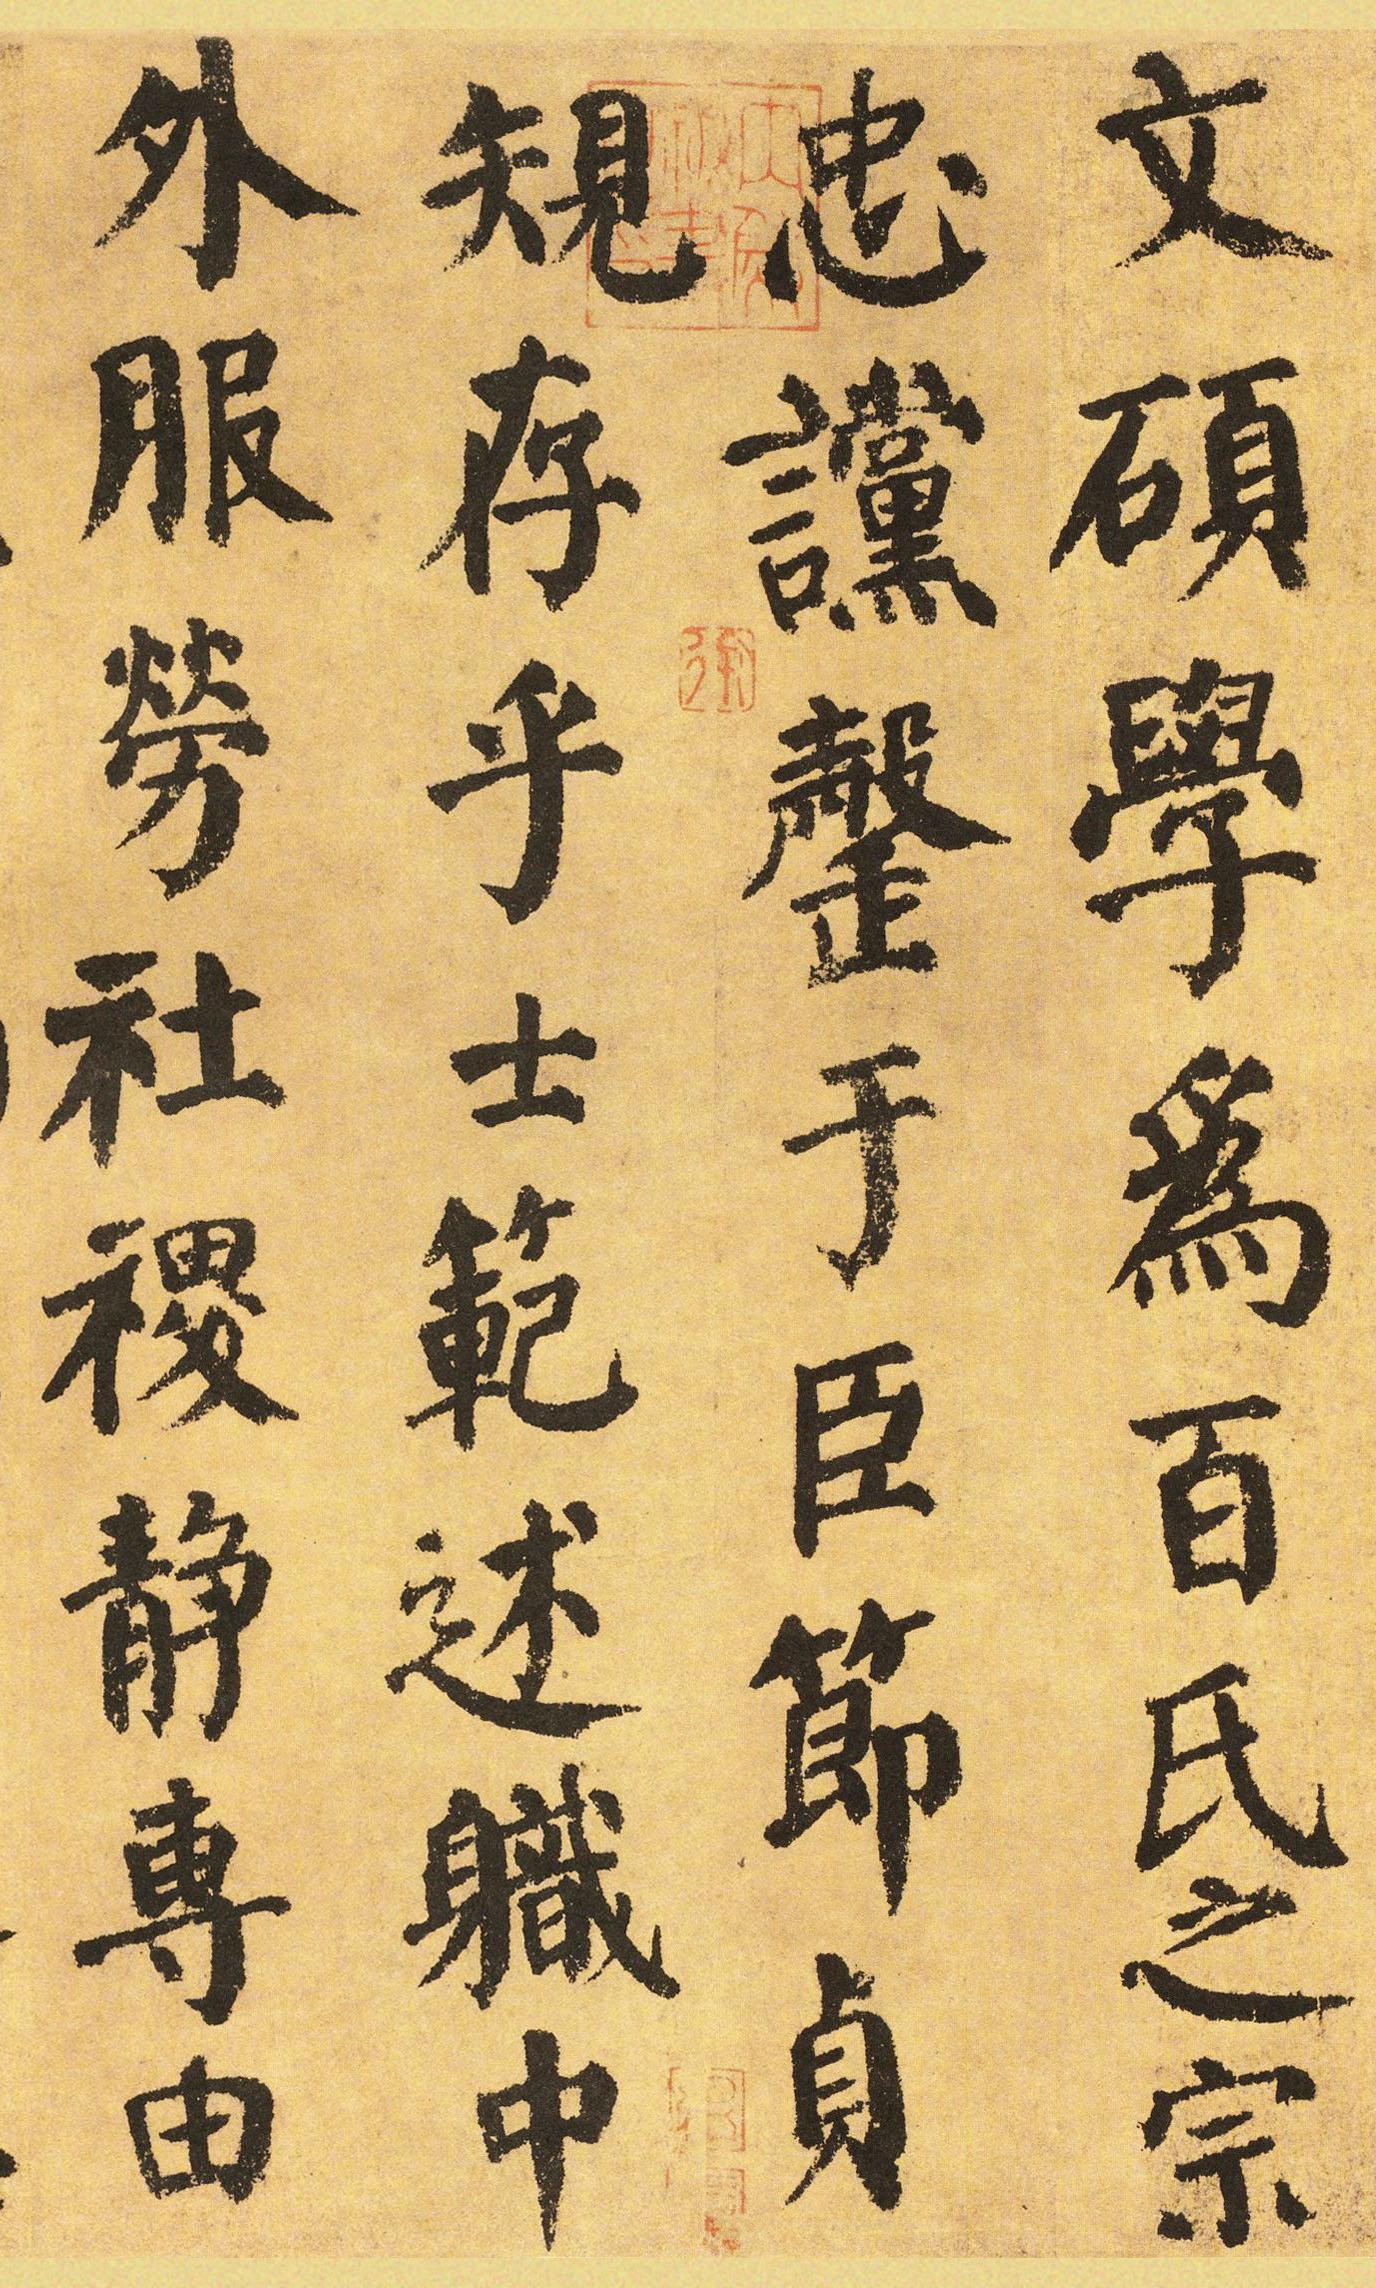 文碩學為百氏之宗
忠讜罄于臣節貞
規存乎士範述職中
外服勞社稷静專由